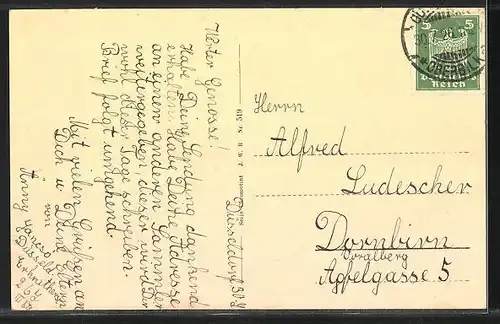 Werter Genosse!
Habe Deine Sendung dankend
erhalten. Habe Deine Adresse
an einen anderen Sammler
weitergegeben, dieser wird Dir
wohl dieser Tage schreiben.
Brief folgt umgehend.
Mit vielen Grüßen an
Dich u. Deine Eltern
von
Anny
Düsseldorf
Düsseldorf 30.
J. W. B. Nr. 519
5 5
Deutsches
Reich
Herrn
Alfred
Ludescher
Dornbirn
Voralberg
Apfelgasse 5